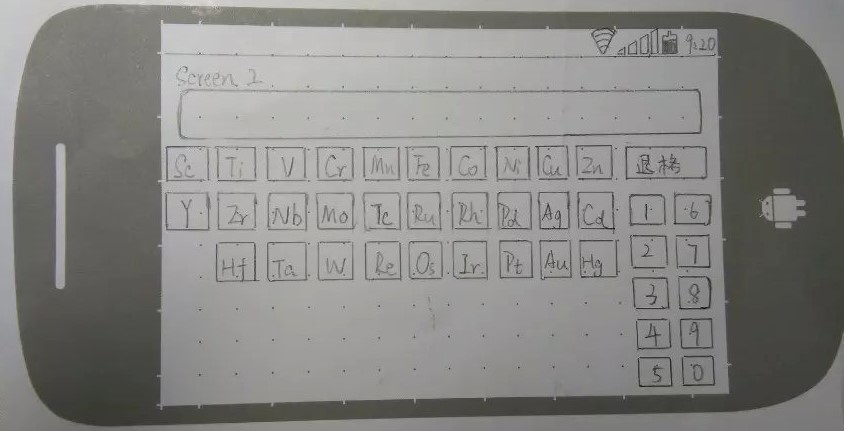 9:20
Screen 2
Sc Ti V Cr Mn Fe Co Ni Cu Zn 退格
Y Zr Nb Mo Tc Ru Rh Pd Ag Cd 1 6
Hf Ta W Re Os Ir Pt Au Hg 2 7
3 8
4 9
5 0